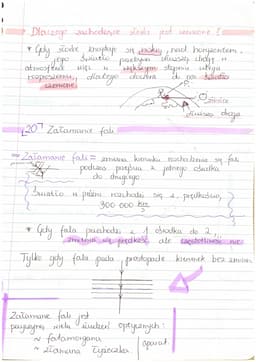 Dlaczego zachodzące słońce jest czerwone?
* Gdy słońce znajduje się nisko, nad horyzontem,
jego światło pokonuje dłuższą drogę w
atmosferze więc w większym stopniu ulega
rozproszeniu, dlatego dociera do nas światło
czerwone.
słońce
dłuższa droga
20 Załamanie fali
Załamanie fali = zmiana kierunku rozchodzenia się fali
podczas przejścia z jednego ośrodka
do drugiego.
Światło w próżni rozchodzi się z prędkością
300 000 km/s
* Gdy fala przechodzi z 1 ośrodka do 2,
zmienia się prędkość ale częstotliwość nie
Tylko gdy fala pada prostopadle kierunek bez zmian
Załamanie fali jest
przyczyną wielu złudzeń optycznych:
~ fatamorgana
~ złamana łyżeczka